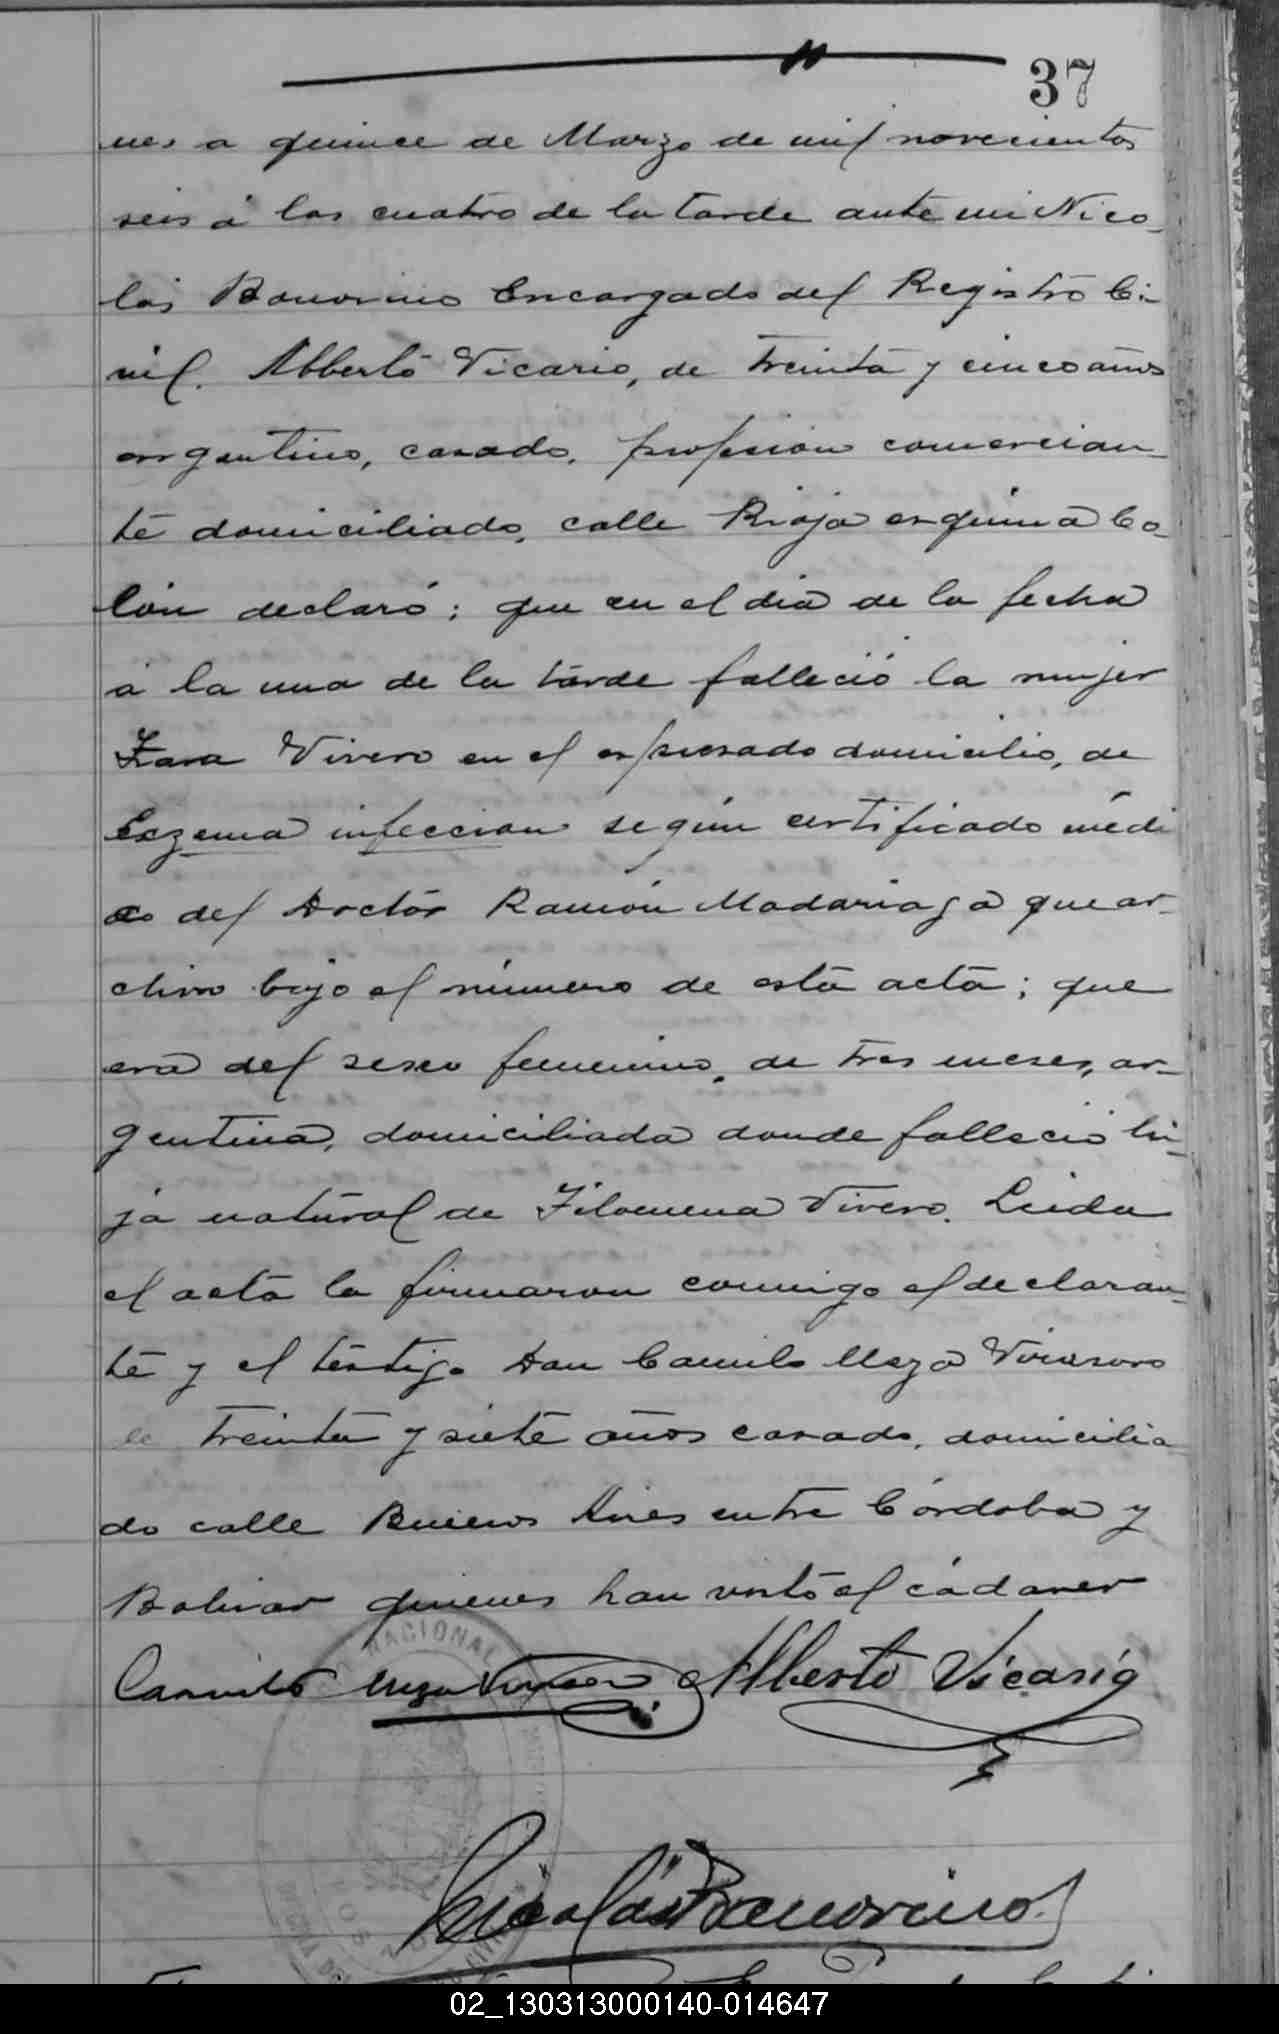 37
nes a quince de Marzo de mil novecientos
seis á las cuatro de la tarde ante mi Nico-
lás Bonorino Encargado del Registro Ci-
vil. Alberto Vicario, de treinta y cinco años
argentino, casado, profesion comercian-
te domiciliado, calle Rioja esquina Co-
lón declaró; que en el dia de la fecha
á la una de la tarde falleció la mujer
Zara Vivero en el espresado domicilio, de
Eczema infeccion según certificado médi
co del Doctor Ramón Madariaga que ar-
chivo bajo el número de esta acta; que
era del sexo femenino, de tres meses, ar-
gentina, domiciliada donde falleció hi-
ja natural de Filomena Vivero. Leida
el acta la firmaron conmigo el declaran-
te y el testigo Don Camilo Meza Virasoro
de treinta y siete años casado, domicilia
do calle Buenos Aires entre Córdoba y
Bolivar quienes han visto el cádaver
Camilo Meza Virasoro Alberto Vicario
NACIONAL
Nicolás Bonorino
02_130313000140-014647